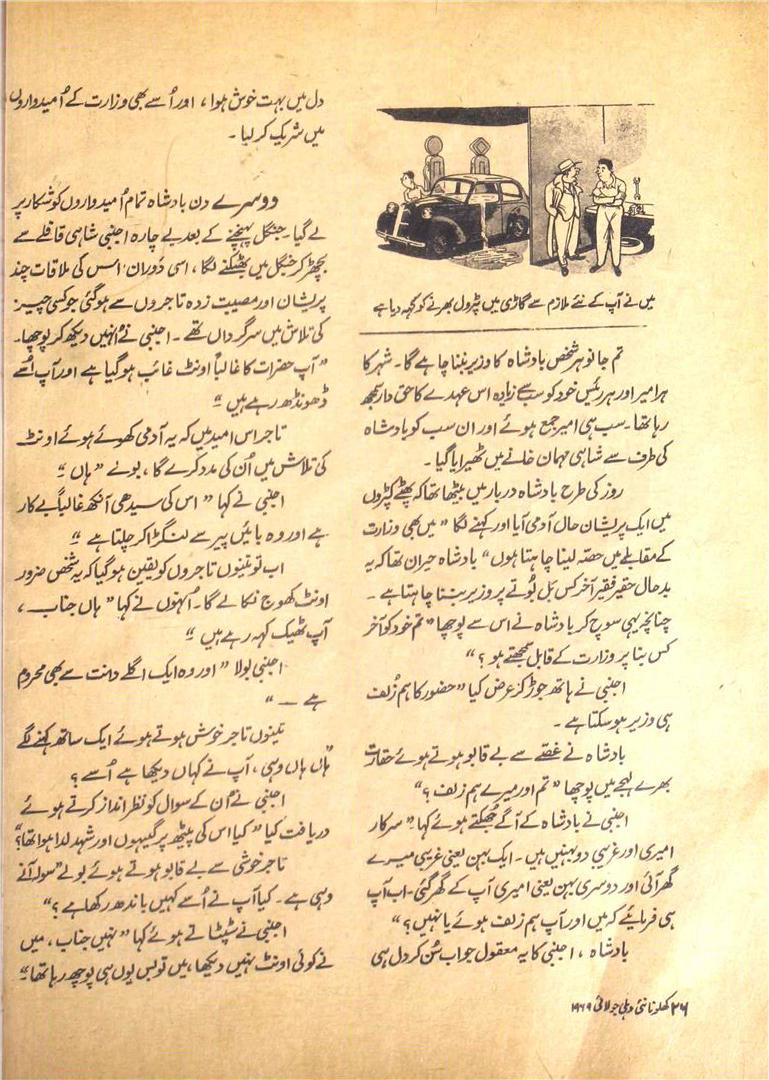 میں نے آپ کے نئے ملازم سے گاڑی میں پٹرول بھرنے کو کہہ دیا ہے
تم جانو ہر شخص بادشاہ کا وزیر بننا چاہے گا۔ شہر کا
ہر امیر اور ہر رئیس خود کو سب سے زیادہ اس عہدے کا حق دار سمجھ
رہا تھا۔ سب ہی امیر جمع ہوئے اور ان سب کو بادشاہ
کی طرف سے شاہی مہمان خانے میں ٹھیرایا گیا۔
روز کی طرح بادشاہ دربار میں بیٹھا تھا کہ پھٹے کپڑوں
میں ایک پریشان حال آدمی آیا اور کہنے لگا ”میں بھی وزارت
کے مقابلے میں حصّہ لینا چاہتا ہوں“ بادشاہ حیران تھا کہ یہ
بد حال حقیر فقیر آخر کس بَل بُوتے پر وزیر بننا چاہتا ہے۔
چنانچہ یہی سوچ کر بادشاہ نے اس سے پوچھا ”تم خود کو آخر
کس بنا پر وزارت کے قابل سمجھتے ہو ؟“
اجنبی نے ہاتھ جوڑ کر عرض کیا ”حضور کا ہم زُلف
ہی وزیر ہو سکتا ہے۔
بادشاہ نے غصّے سے بے قابو ہوتے ہوئے حقارت
بھرے لہجے میں پوچھا ”تم اور میرے ہم زلف ؟“
اجنبی نے بادشاہ کے آگے جُھکتے ہوئے کہا ”سرکار
امیری اور غریبی دو بہنیں ہیں۔ ایک بہن یعنی غریبی میرے
گھر آئی اور دوسری بہن یعنی امیری آپ کے گھر گئی۔ اب آپ
ہی فرمایئے کہ میں اور آپ ہم زلف ہوئے یا نہیں ؟“
بادشاہ ، اجنبی کا یہ معقول جواب سُن کر دل ہی
دل میں بہت خوش ہوا ، اور اُسے بھی وزارت کے اُمیدواروں
میں شریک کر لیا۔
دوسرے دن بادشاہ تمام اُمیدواروں کو شکار پر
لے گیا۔ جنگل پہنچنے کے بعد بے چارہ اجنبی شاہی قافلے سے
بچھڑ کر جنگل میں بھٹکنے لگا ، اسی دوران اس کی ملاقات چند
پریشان اور مصیبت زدہ تاجروں سے ہو گئی جو کسی چیز
کی تلاش میں سرگرداں تھے۔ اجنبی نے اُنہیں دیکھ کر پوچھا۔
”آپ حضرات کا غالباً اونٹ غائب ہو گیا ہے اور آپ اُسے
ڈھونڈھ رہے ہیں“
تاجر اس امید میں کہ یہ آدمی کھوئے ہوئے اونٹ
کی تلاش میں اُن کی مدد کرے گا ، بولے ”ہاں“
اجنبی نے کہا ”اس کی سیدھی آنکھ غالباً بے کار
ہے اور وہ بائیں پیر سے لنگڑا کر چلتا ہے“
اب تو تینوں تاجروں کو یقین ہو گیا کہ یہ شخص ضرور
اونٹ کھوج نکالے گا۔ اُنہوں نے کہا ”ہاں جناب ،
آپ ٹھیک کہہ رہے ہیں“
اجنبی بولا ”اور وہ ایک اگلے دانت سے بھی محروم
ہے —“
تینوں تاجر خوش ہوتے ہوئے ایک ساتھ کہنے لگے
”ہاں ہاں وہی ، آپ نے کہاں دیکھا ہے اُسے ؟
اجنبی نے اُن کے سوال کو نظر انداز کرتے ہوئے
دریافت کیا ”کیا اس کی پیٹھ پر گیہوں اور شہد لدا ہوا تھا؟“
تاجر خوشی سے بے قابو ہوتے ہوئے بولے ”سولہ آنے
وہی ہے۔ کیا آپ نے اُسے کہیں باندھ رکھا ہے ؟“
اجنبی نے سٹپٹاتے ہوئے کہا ”نہیں جناب ، میں
نے کوئی اونٹ نہیں دیکھا ، میں تو بس یوں ہی پوچھ رہا تھا“
۲۶ کھلونا نئی دہلی جولائی ۱۹۶۹